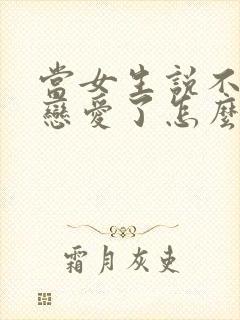 當女生說不
戀愛了怎麼
霜月灰吏